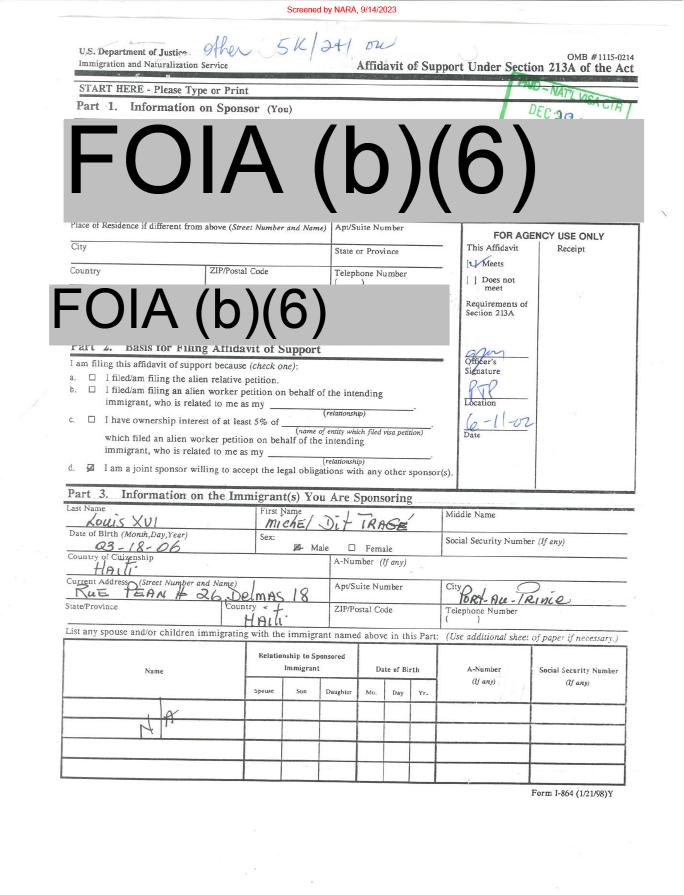 Screened by NARA, 9/14/2023
other 5K/241 on
U.S. Department of Justice
Immigration and Naturalization Service
OMB #1115-0214
Affidavit of Support Under Section 213A of the Act
START HERE - Please Type or Print
Part 1. Information on Sponsor (You)
NAT'L VISA CTR
DEC
FOIA (b)(6)
Place of Residence if different from above (Street Number and Name)
Apt/Suite Number
City
State or Province
Country
ZIP/Postal Code
Telephone Number
( )
FOIA (b)(6)
FOR AGENCY USE ONLY
This Affidavit
Receipt
[✓] Meets
[ ] Does not
meet
Requirements of
Section 213A
Officer's
Signature
PTP
Location
6-11-02
Date
Part 2. Basis for Filing Affidavit of Support
I am filing this affidavit of support because (check one):
a. ☐ I filed/am filing the alien relative petition.
b. ☐ I filed/am filing an alien worker petition on behalf of the intending
immigrant, who is related to me as my
(relationship)
c. ☐ I have ownership interest of at least 5% of
(name of entity which filed visa petition)
which filed an alien worker petition on behalf of the intending
immigrant, who is related to me as my
(relationship)
d. ☑ I am a joint sponsor willing to accept the legal obligations with any other sponsor(s).
Part 3. Information on the Immigrant(s) You Are Sponsoring
Last Name
Louis XVI
First Name
Michel Dit TRAGE
Middle Name
Date of Birth (Month,Day,Year)
03-18-06
Sex:
☑ Male ☐ Female
Social Security Number (If any)
Country of Citizenship
HAiti
A-Number (If any)
Current Address (Street Number and Name)
RuE PEAN # 26 DelMAS 18
Apt/Suite Number
City
Port-Au-Prince
State/Province
Country
HAiti
ZIP/Postal Code
Telephone Number
( )
List any spouse and/or children immigrating with the immigrant named above in this Part: (Use additional sheet of paper if necessary.)
Name
Relationship to Sponsored
Immigrant
Spouse Son Daughter
Date of Birth
Mo. Day Yr.
A-Number
(If any)
Social Security Number
(If any)
N A
Form I-864 (1/21/98)Y